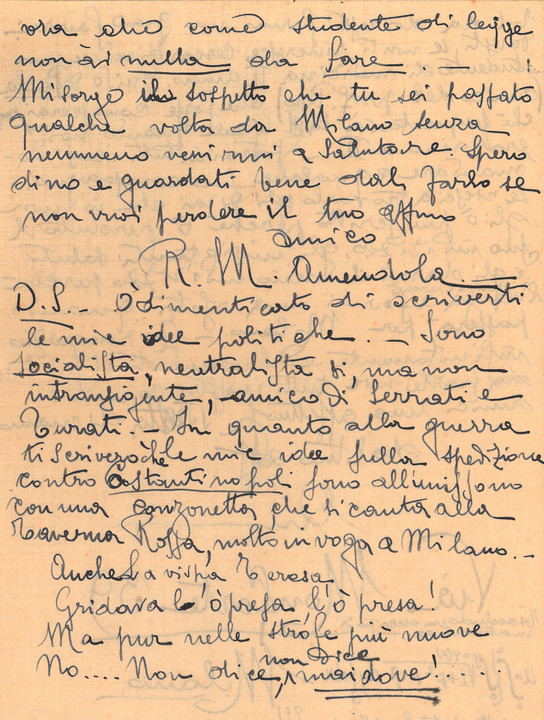 ora che come studente di legge
non ài nulla da fare. _ . _ . !
Mi sorge il sospetto che tu sei passato
qualche volta da Milano senza
nemmeno venirmi a salutare. Spero
di no e guardati bene dal farlo se
non vuoi perdere il tuo affmo
amico
R. M. Amendola. _
D. S. _ Ò dimenticato di scriverti
le mie idee politiche. _ Sono
socialista, neutralista sì, ma non
intransigente, _ amico di Serrati e
Turati. _ In quanto alla guerra
ti scriverò che le mie idee sulla spedizione
contro Costantinopoli sono all'unissono
con una canzonetta, che si canta alla
Taverna Rossa, molto in voga a Milano. _
Anche La vispa Teresa
Gridava l'ò presa l'ò presa!
Ma pur nelle strofe più nuove
No.... Non dice, non dice mai dove! .....